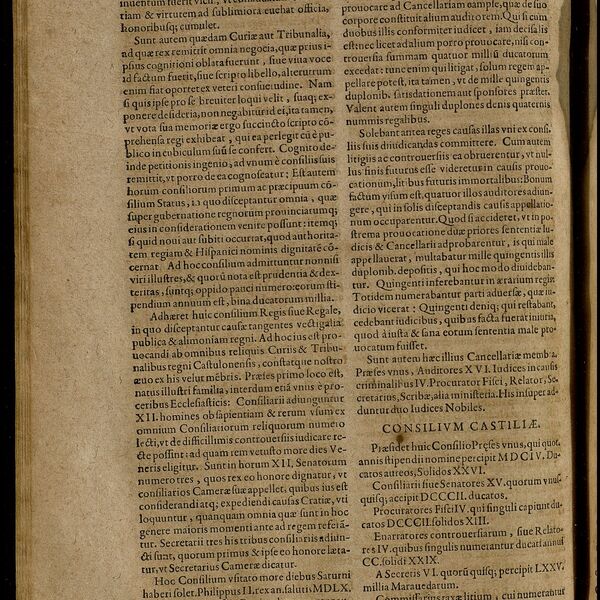 tiam & virtutem ad sublimiora euehat officia,
honoribusq; cumulet.
Sunt autem quædam Curiæ aut Tribunalia,
ad quæ rex remittit omnia negocia, quæ prius i-
psius cognitioni oblata fuerunt, siue viua voce
id factum fuerit, siue scripto libello, alterutrum
enim fiat oportet ex veteri consuetudine. Nam
si quis ipse pro se breuiter loqui velit, suaq; ex-
ponere desideria, non negabitur id ei, ita tamen,
vt vota sua memoriæ ergo succincto scripto cō-
prehensa regi exhibeat, qui ea perlegit cū è pu-
blico in cubiculum suū se confert. Cognito de-
inde petitionis ingenio, ad vnum è consiliis suis
remittit, vt porro de ea cognoscatur: Est autem
horum consiliorum primum ac præcipuum cō-
silium Status, in quo disceptantur omnia, quæ
super gubernatione regnorum prouinciarumq;
eius in considerationem venire possunt: itemq;
si quid noui aut subiti occurrat, quod authorita-
tem regiam & Hispanici nominis dignitatē cō-
cernat. Ad hoc consilium admittuntur nonnisi
viri illustres, & quorū nota est prudentia & dex-
teritas, suntq; oppido pauci numero: eorum sti-
pendium annuum est, bina ducatorum millia.
Adhæret huic consilium Regis siue Regale,
in quo disceptantur causæ tangentes vectigalia
publica & alimoniam regni. Ad hoc ius est pro-
uocandi ab omnibus reliquis Curiis & Tribu-
nalibus regni Castulonensis, constatque nostro
æuo ex his velut mēbris. Præses primo loco est,
natus illustri familia, interdum etiā vnus è pro-
ceribus Ecclesiasticis: Consiliarii adiunguntur
XII. homines ob sapientiam & rerum vsum ex
omnium Consiliatiorum reliquorum numero
lecti, vt de difficilimis controuersiis iudicare re-
cte possint: ad quam rem vetusto more dies Ve-
neris eligitur. Sunt in horum XII. Senatorum
numero tres, quos rex eo honore dignatur, vt
consiliarios Cameræ suæ appellet, quibus ius est
considerandi atq; expediendi causas Cratiæ, vti
loquuntur, quanquam omnia quæ sunt in hoc
genere maioris momenti ante ad regem referā-
tur. Secretarii tres his tribus consiliariis adiun-
cti sunt, quorum primus & ipse eo honore læta-
tur, vt Secretarius Cameræ dicatur.
Hoc Consilium vsitato more diebus Saturni
haberi solet. Philippus II. rex an. salutis MDLX.
prouocare ad Cancellariam ōample, quæ de suo
corpore constituit alium auditorem. Qui si cum
duobus illis conformiter iudicet, iam decisa lis
est: nec licet ad alium porro prouocare, nisi con-
trouersia summam quatuor milliū ducatorum
excedat: tunc enim qui litigat, solum regem ap-
pellare potest, ita tamen, vt de mille quingentis
duplonib. satisdationem aut sponsores præstet.
Valent autem singuli duplones denis quaternis
nummis regalibus.
Solebant antea reges causas illas vni ex consi-
liis suis diiudicandas committere. Cum autem
litigiis ac controuersiis ea obrueretur, vt nul-
lus finis futurus esse videretur in causis prouo-
cationum, litibus futuris immortalibus: Bonum
factum visum est, quatuor illos auditores adiun-
gere, qui in solis disceptandis causis appellatio-
num occuparentur. Quod si accideret, vt in po-
strema prouocatione duæ priores sententiæ Iu-
dicis & Cancellarii adprobarentur, is qui male
appellauerat, multabatur mille quingentis illis
duplonib. depositis, qui hoc modo diuideban-
tur. Quingenti inferebantur in ærarium regis
Totidem numerabantur parti aduersæ, quæ iu-
dicio vicerat: Quingenti deniq; qui restabant,
cedebant iudicibus, quibus facta fuerat iniuria,
quod à iusta & sana eorum sententia male pro-
uocatum fuisset.
Sunt autem hæc illius Cancellariæ membra.
Præses vnus, Auditores XVI. Iudices in causis
criminalibus IV. Procurator Fisci, Relator, Se-
cretarius, Scribæ, alia ministeria. His insuper ad-
duntur duo Iudices Nobiles.
CONSILIVM CASTILIÆ.
Præsidet huic Consilio Præses vnus, qui quot-
annis stipendii nomine percipit MDCIV. Du-
catos aureos, Solidos XXVI.
Consiliarii siue Senatores XV. quorum vnus-
quisq; accipit DCCCII. ducatos.
Procuratores Fisci IV. qui singuli capiunt du-
catos DCCCII. solidos XIII.
Enarratores controuersiarum, siue Relato-
res IV. quibus singulis numerantur ducati annui
CC. solidi XXIX.
A Secretis VI. quorū quisq; percipit LXXV.
millia Marauedarum.